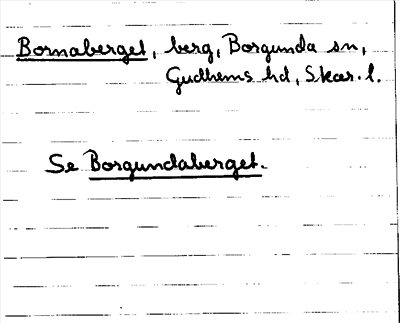 Bornaberget, berg, Borgunda sn,
Gudhems hd, Skar. l.
Se Borgundaberget.